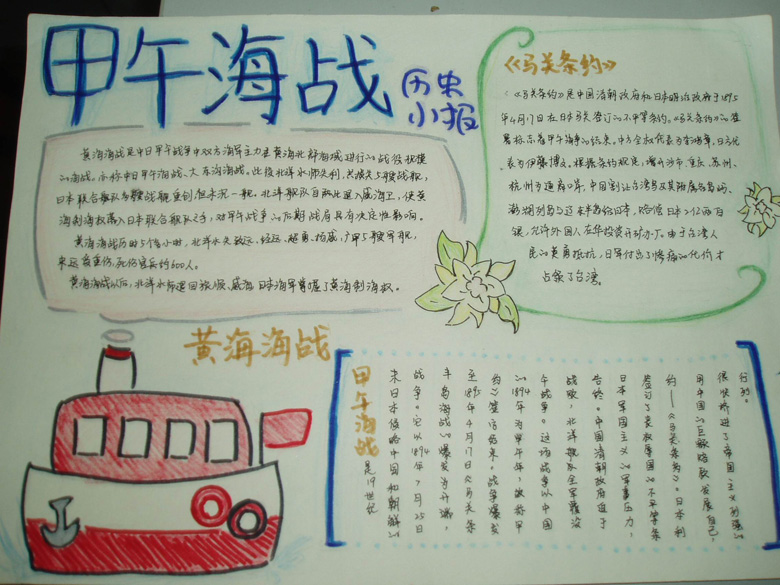 甲午海战
历史
小报
黄海海战是中日甲午战争中双方海军主力在黄海北部海域进行的战役规模
的海战。亦称中日甲午海战、大东沟海战。此役北洋水师失利,共损失5艘战舰,
日本联合舰队5艘战舰重创但未沉一艘。北洋舰队自此退入威海卫,使黄
海制海权落入日本联合舰队之手,对甲午战争的后期战局具有决定性影响。
黄海海战历时5个多小时,北洋水失致远、经远、超勇、扬威、广甲5艘军舰,
来远受重伤,死伤官兵约600人。
黄海海战以后,北洋水师退回旅顺、威海,日本海军掌握了黄海制海权。
《马关条约》
《马关条约》是中国清朝政府和日本明治政府于1895
年4月17日在日本马关签订的不平等条约。《马关条约》的签
署标示着甲午海争的结束。中方全权代表为李鸿章,日方代
表为伊藤博文。根据条约规定,增开沙市、重庆、苏州、
杭州为通商口岸,中国割让台湾岛及其附属各岛屿、
澎湖列岛与辽东半岛给日本,赔偿日本2亿两白
银,允许外国人在华投资开动办厂。由于台湾人
民的英勇抵抗,日军付出了惨痛的代价才
占领了台湾。
黄海海战
甲午海战是19世纪
末日本侵略中国和朝鲜的
战争。它以1894年7月25日
丰岛海战的爆发为开端,
至1895年4月17日《马关条
约》签字结束。战争爆发
的1894年为甲午年,故称甲
午战争。这场战争以中国
战败,北洋舰队全军覆没
告终。中国清朝政府迫于
日本军国主义的军事压力,
签订了丧权辱国的不平等条
约——《马关条约》。日本利
用中国的巨额赔款发展自己,
很快挤进了帝国主义列强的
行列。